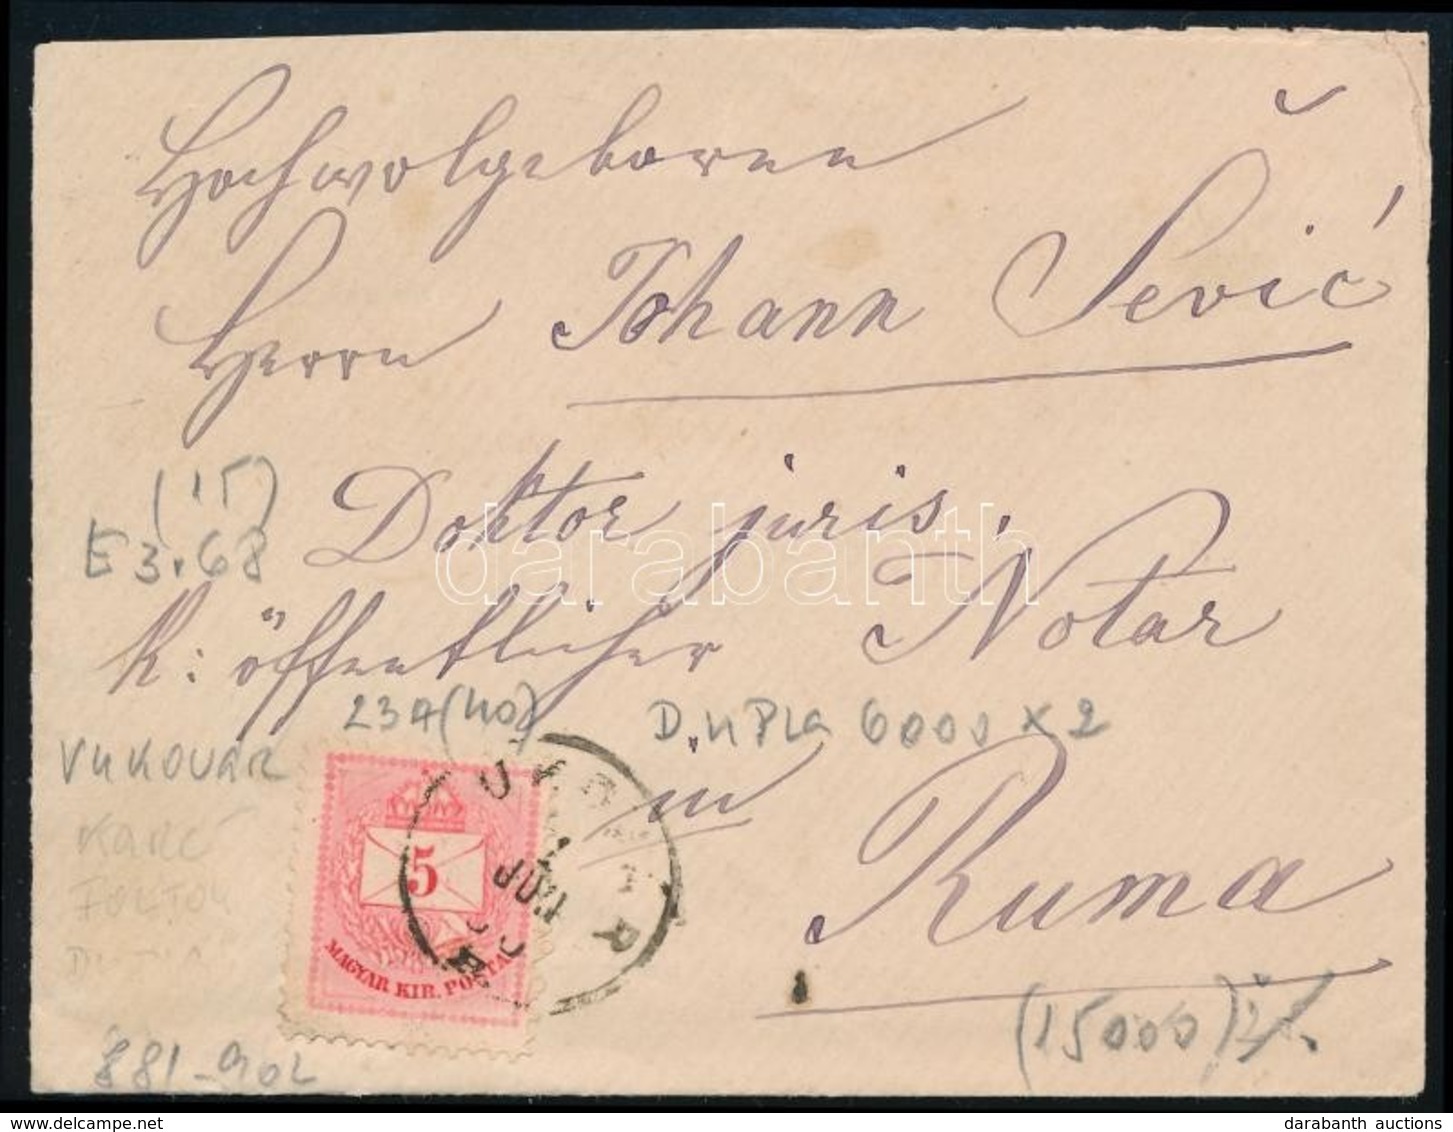 Hochwolgeboren
Herrn Johann Šević
Doktor juris.
k: öffentlicher Notar
in
Ruma
(15)
E 3.68
23A(40)
DUPLA 6000 x 2
VUKOVAR
881-902
(15000)
5
MAGYAR KIR. POSTA
darabanth
darabanth auctions